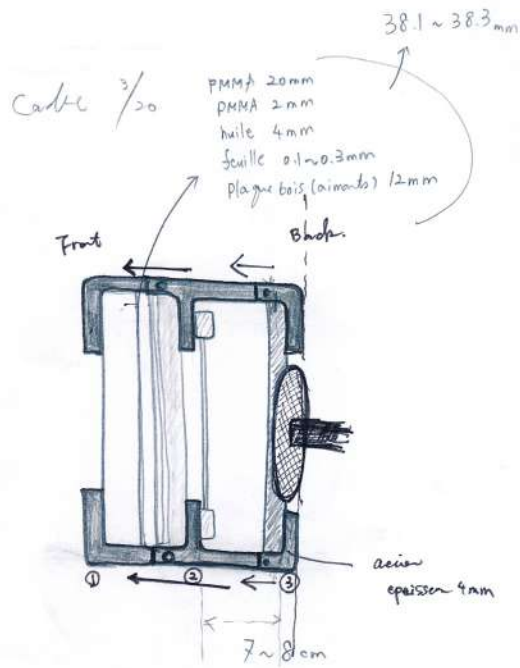 38.1 ~ 38.3 mm
Cadre 3/20
PMMA 20mm
PMMA 2mm
huile 4mm
feuille 0.1~0.3mm
plaque bois (aimants) 12mm
Front
Back.
① ② ③
acier
epaisseur 4mm
7 ~ 8 cm